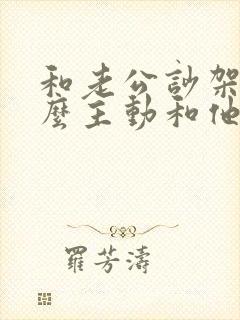 和老公訪架
麼主動和他
羅芳濤